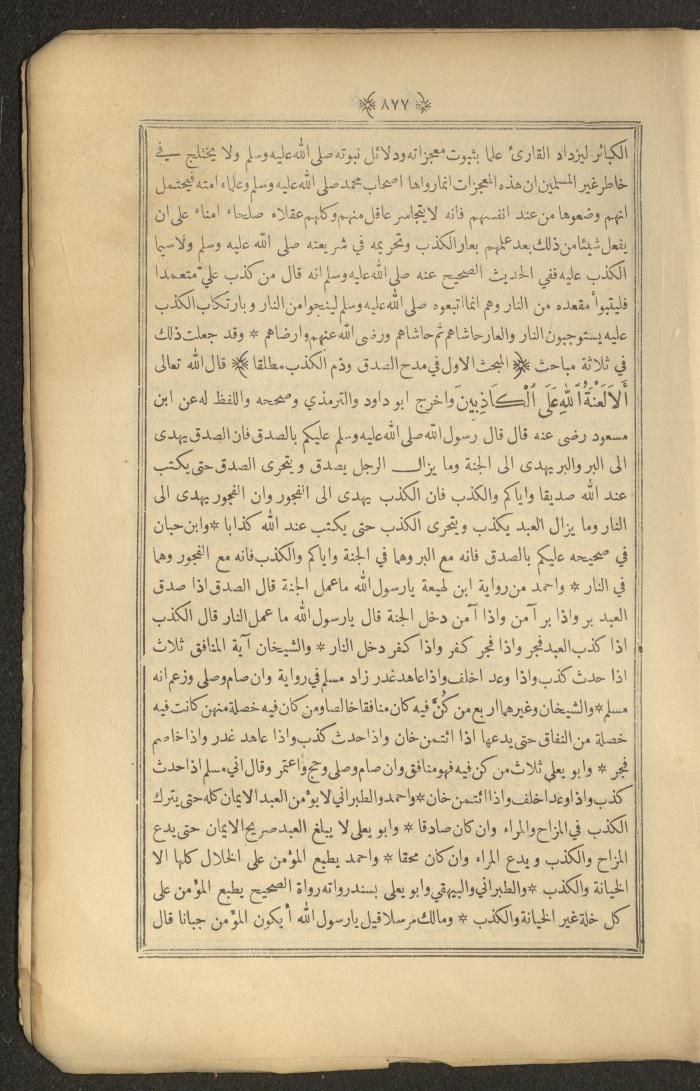 ﴿ ٨٧٧ ﴾
الكبائر ليزداد القارئ علما بثبوت معجزاته ودلائل نبوته صلى الله عليه وسلم ولا يختلج في
خاطر غير المسلمين ان هذه المعجزات انما رواها اصحاب محمد صلى الله عليه وسلم وعلماء امته فيحتمل
انهم وضعوها من عند انفسهم فانه لا يتجاسر عاقل منهم وكلهم عقلاء صلحاء امناء على ان
يفعل شيئا من ذلك بعد علمهم بعار الكذب وتحريمه في شريعته صلى الله عليه وسلم ولا سيما
الكذب عليه ففي الحديث الصحيح عنه صلى الله عليه وسلم انه قال من كذب عليّ متعمدا
فليتبوأ مقعده من النار وهم انما اتبعوه صلى الله عليه وسلم لينجوا من النار وبارتكاب الكذب
عليه يستوجبون النار والعار حاشاهم ثم حاشاهم ورضى الله عنهم وارضاهم * وقد جعلت ذلك
في ثلاثة مباحث ﴿ المبحث الاول في مدح الصدق وذم الكذب مطلقا ﴾ قال الله تعالى
أَلَا لَعْنَةُ ٱللهِ عَلَى ٱلْكَاذِبِينَ واخرج ابو داود والترمذي وصححه واللفظ له عن ابن
مسعود رضى عنه قال قال رسول الله صلى الله عليه وسلم عليكم بالصدق فان الصدق يهدى
الى البر والبر يهدى الى الجنة وما يزال الرجل يصدق ويتحرى الصدق حتى يكتب
عند الله صديقا واياكم والكذب فان الكذب يهدى الى الفجور وان الفجور يهدى الى
النار وما يزال العبد يكذب ويتحرى الكذب حتى يكتب عند الله كذابا * وابن حبان
في صحيحه عليكم بالصدق فانه مع البر وهما في الجنة واياكم والكذب فانه مع الفجور وهما
في النار * واحمد من رواية ابن لهيعة يارسول الله ما عمل الجنة قال الصدق اذا صدق
العبد بر واذا بر آمن واذا آمن دخل الجنة قال يارسول الله ما عمل النار قال الكذب
اذا كذب العبد فجر واذا فجر كفر واذا كفر دخل النار * والشيخان آية المنافق ثلاث
اذا حدث كذب واذا وعد اخلف واذا عاهد غدر زاد مسلم في رواية وان صام وصلى وزعم انه
مسلم * والشيخان وغيرهما اربع من كُنَّ فيه كان منافقا خالصا ومن كان فيه خصلة منهن كانت فيه
خصلة من النفاق حتى يدعها اذا ائتمن خان واذا حدث كذب واذا عاهد غدر واذا خاصم
فجر * وابو يعلى ثلاث من كن فيه فهو منافق وان صام وصلى وحج واعتمر وقال اني مسلم اذا حدث
كذب واذا وعد اخلف واذا ائتمن خان * واحمد والطبراني لا يؤمن العبد الايمان كله حتى يترك
الكذب في المزاح والمراء وان كان صادقا * وابو يعلى لا يبلغ العبد صريح الايمان حتى يدع
المزاح والكذب ويدع المراء وان كان محقا * واحمد يطبع المؤمن على الخلال كلها الا
الخيانة والكذب * والطبراني والبيهقي وابو يعلى بسند رواته رواة الصحيح يطبع المؤمن على
كل خلة غير الخيانة والكذب * ومالك مرسلا قيل يارسول الله أيكون المؤمن جبانا قال